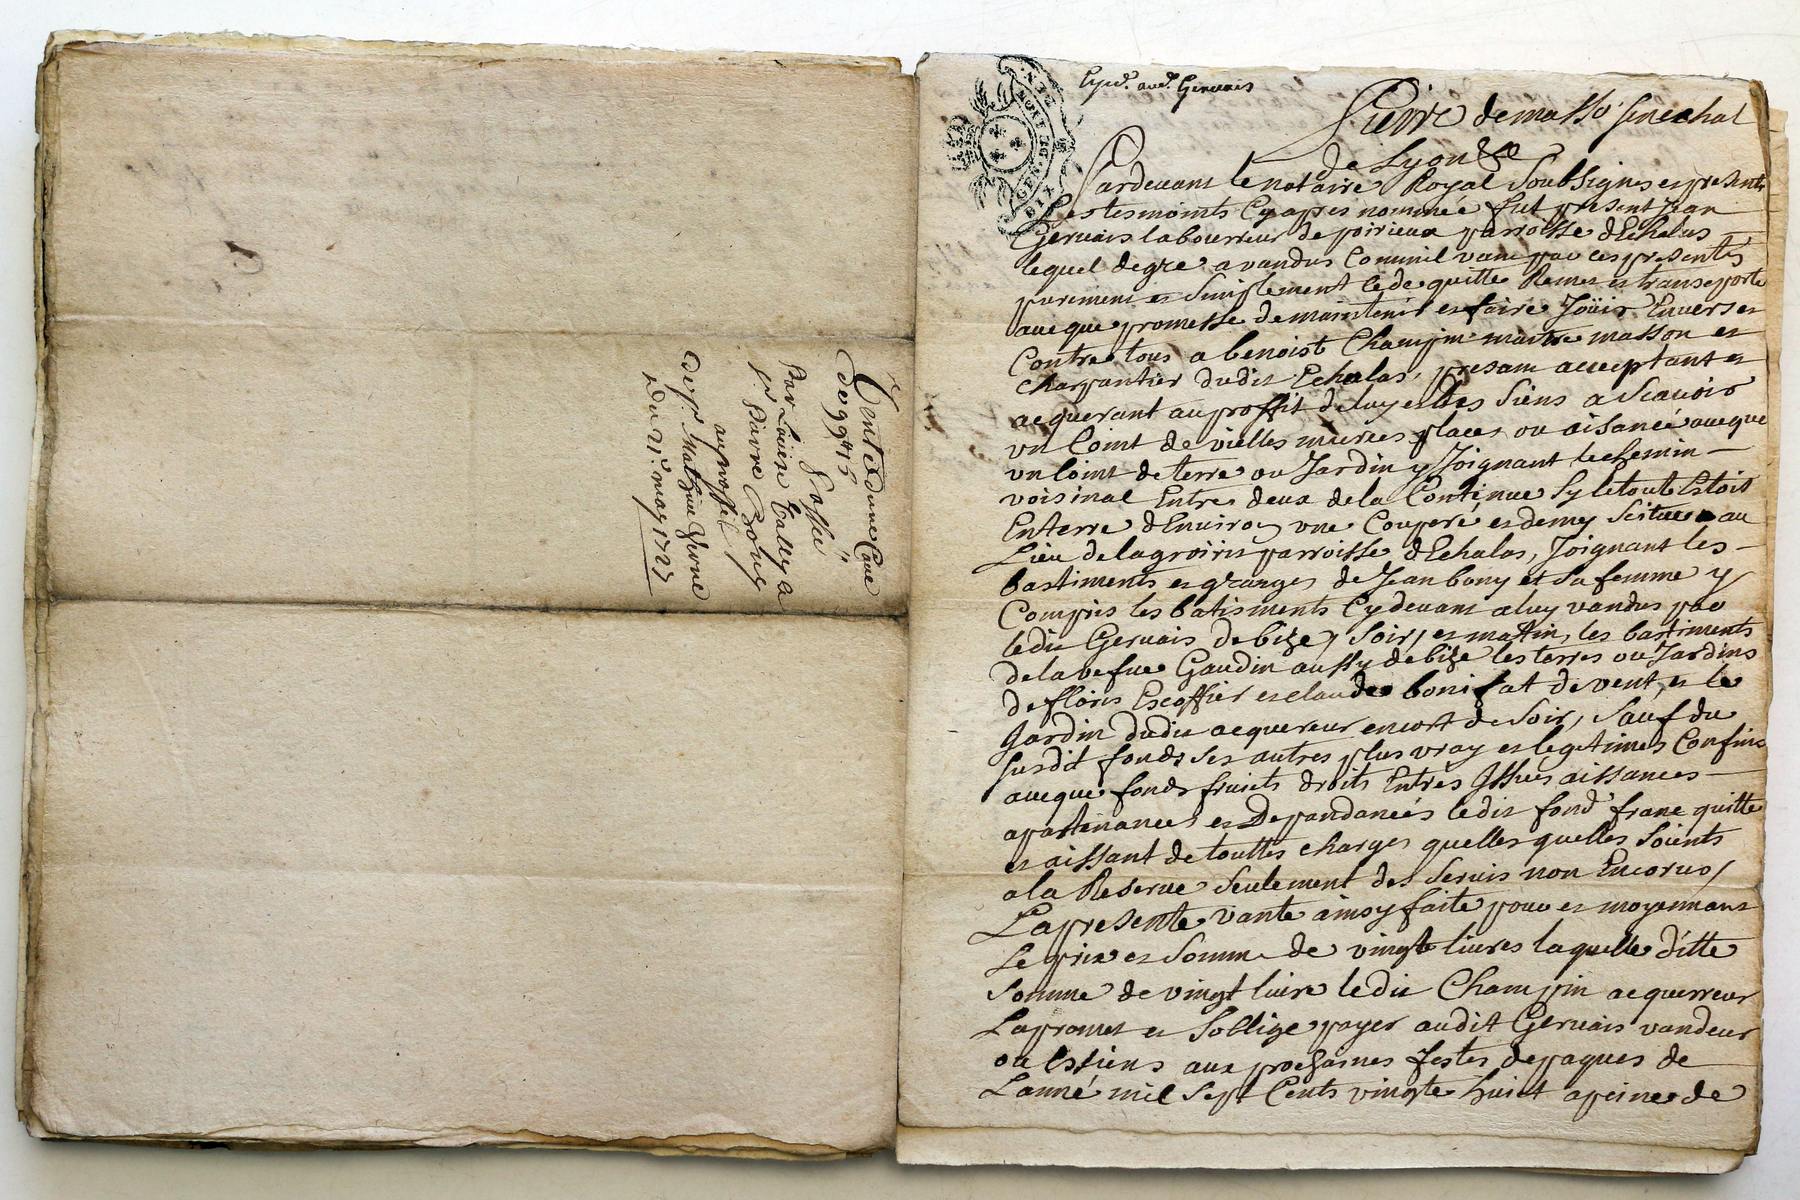 Vente d'une Cave
de 99 # 15 s
Par Louise
Pierre
au proffit
de Sr. Mathieu
Du 21e. may 1727
Gervais
Pierre de masso senechal
de Lyon &ca
Pardevant le notaire Royal Soubsignes es presents
Les tesmoints Cyapres nommée fut present Jean
Gervais labourreur de poirieux parroisse dEchalas
lequel degre a vandus Comme il vant par ces presentes
purement et Simplement cede quitte Remet et transporte
aveque promesse de maintenir et faire Joüir Envers et
Contre tous a benoist Champin maitre masson et
charpantier dudit Echalas, presant acceptant et
acquerant au proffit de luy et des Siens a Scavoir
vn Coint de vielles mures place ou aisance aveque
vn Coint de terre ou Jardin y Joignant le chemin
voisinal Entre deux de la Continue Sy le tout Estoit
En terre dEnviron vne Couperé et demy Scitue au
Lieu de la parroisse dEchalas, Joignant les
bastiments et granges de Jean bony et Sa femme y
Compris les batisments Cy devant a luy vandus par
ledit Gervais de bize, Soir, et matin, les bastiments
De la vefue Gaudin aussy de bize les terres ou Jardins
De floris Escoffier et claude bonifat de vent, et le
Jardin dudit acquereur encort de Soir, Sauf du
susdit fonds ses autres plus vray et legitimes Confins
aveque fonds fruicts droits Entres Jssues aissances
apartenances et Dependances ledit fond franc quitte
et aissant de touttes charges quelles quelles Soients
a la Reserve Seulement des Servis non Encorus,
La presente vante ainsy faite pour et moyennant
Le prix et Somme de vingt livres laquelle ditte
Somme de vingt livre ledit Champin acquerreur
La promet et Soblige payer audit Gervais vandeur
ou Es siens aux prochaines festes de paques de
Lanné mil Sept Cents vingte huict a peine de